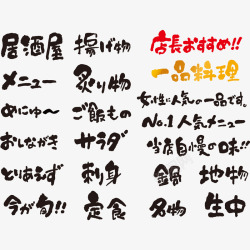 居酒屋
揚げ物
店長おすすめ!!
メニュー
炙り物
一品料理
めにゅ〜
ご飯もの
女性に人気の一品です。
おしながき
サラダ
No.1人気メニュー
とりあえず
刺身
当店自慢の味!!
今が旬!!
定食
鍋
地物
名物
生中